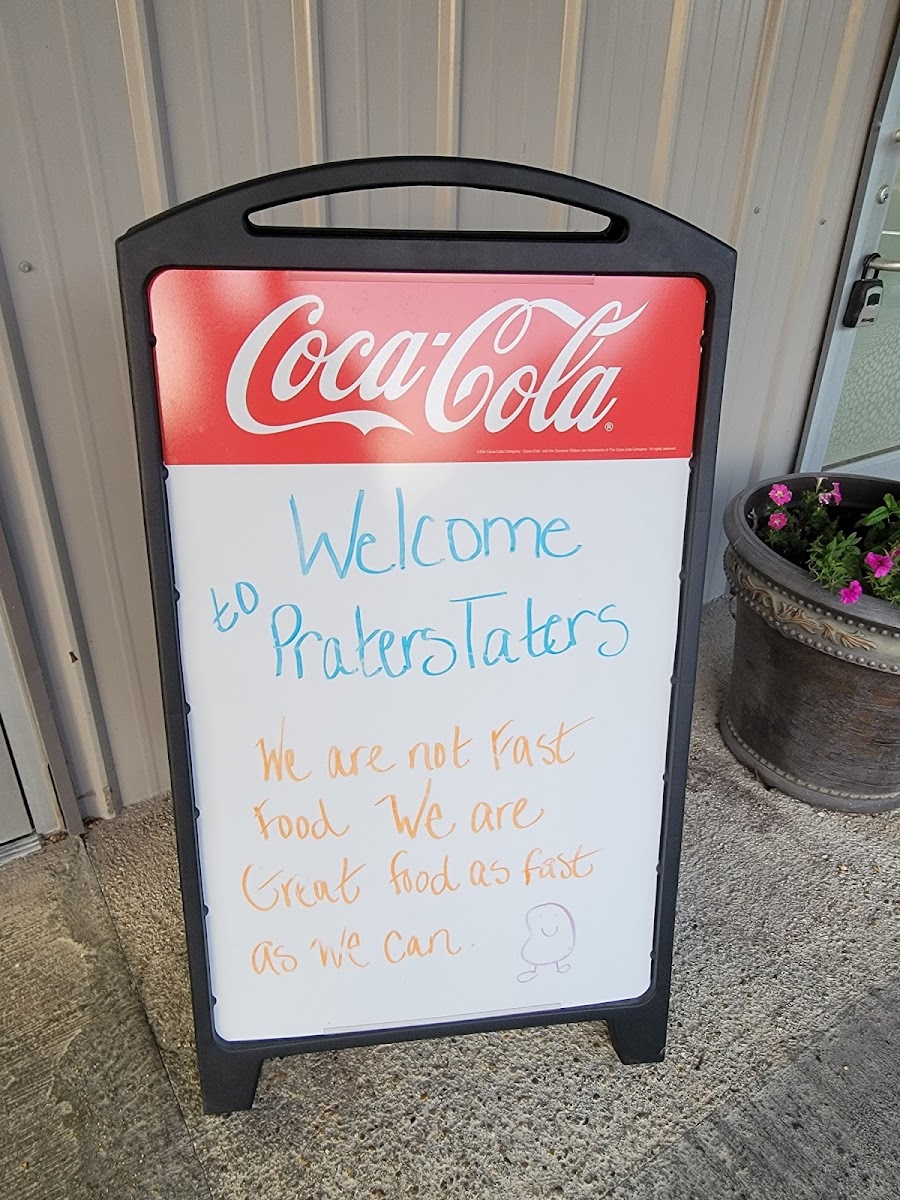 Coca-Cola®
Welcome
to PratersTaters
We are not Fast
Food We are
Great food as fast
as we can.